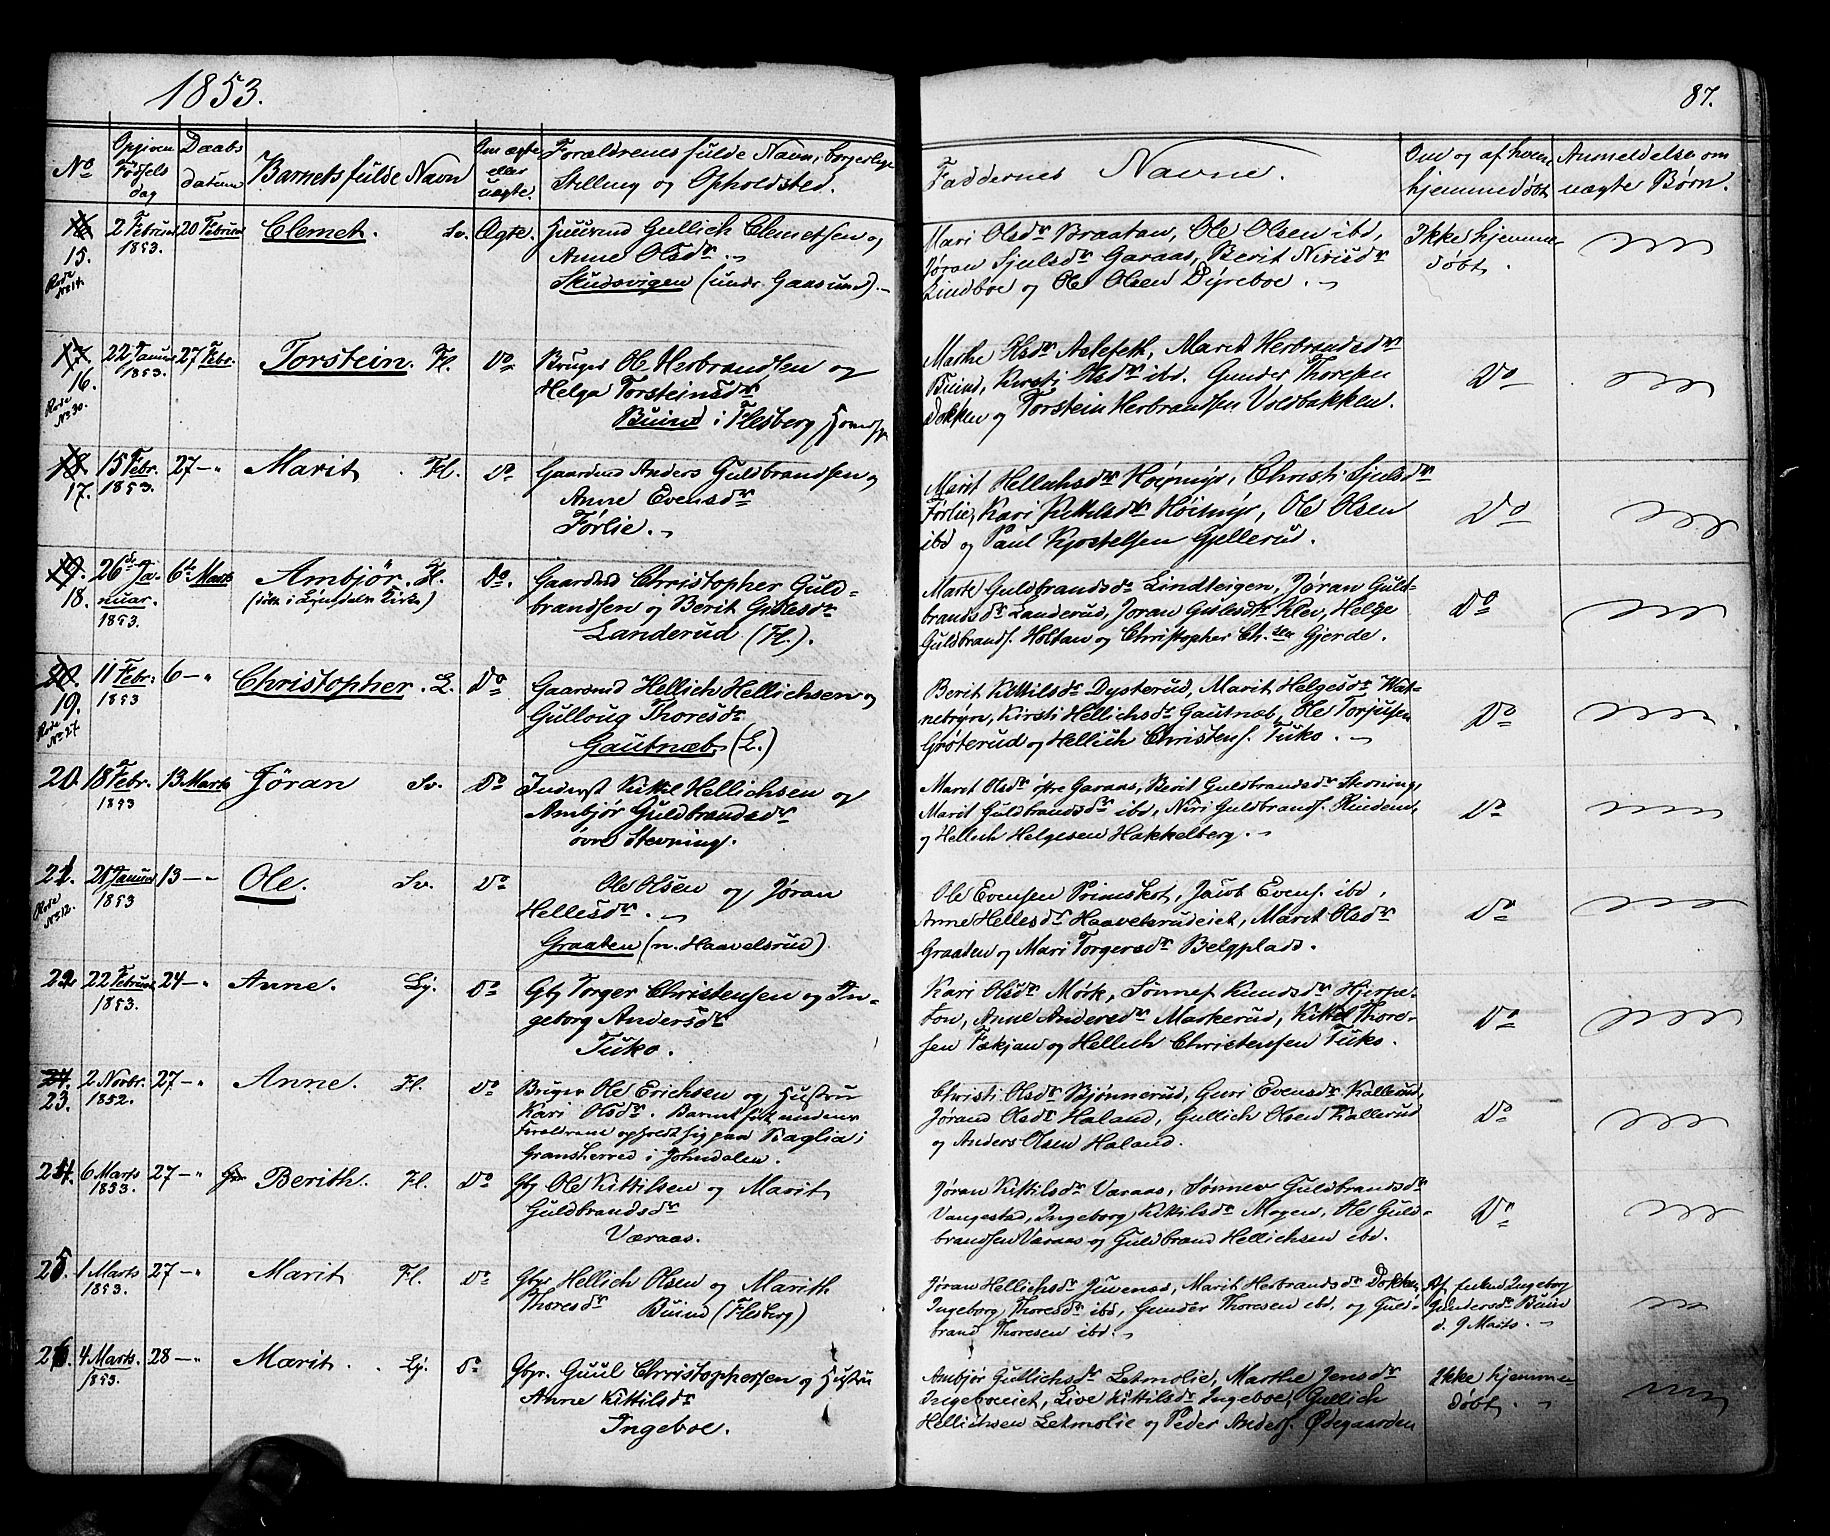 1853.
87.
No
Opgiven Fødsels dag
Daabs datum
Barnets fulde Navn
Om ægte eller uægte.
Forældrenes fulde Navn, borgerlige Stilling og Opholdsted.
Faddernes Navne.
Om og af hvem hjemmedøbt
Anmeldelse om uægte Børn.
15. 2 Februar 1853. 20 Februar Clemet. Sv. Ægte. Huusmd Gullich Clemetsen og
Anne Olsdr.
Skudsvigen (under Gaasund).
Mari Olsdr Braatan, Ole Olsen ibd,
Jøran Sjulsdr Garaas, Berit Nirisdr
Lindboe og Ole Olsen Dyreboe.
Ikke hjemme-
døbt.
Rode No 14.
16. 22 Januar 1853. 27 Febr. Torstein. Fl. Do Bruger Ole Herbrandsen og
Helga Torsteinsdr
Buind i Flesberg Hovedsg
Marthe Olsdr Aslefeth, Marit Herbrandsdr
Buind, Kirsti Olsdr ibd. Gunder Thoresen
Dokken og Torstein Herbrandsen Voldbakken.
Do
Rode No 30.
17. 15 Febr. 1853. 27 — " Marit Fl. Do Gaardmd Anders Guldbrandsen og
Anne Evensdr
Førlie.
Marit Hellichsdr Høimyr, Christi Sjulsdr
Førlie, Kari Kittilsdr Høimyr, Ole Olsen
ibd og Paul Kjostelsen Gjellerud.
Do
18. 26de Januar. 1853. 6te Marts Ambjør. Fl. Do. Gaardmd Christopher Guld-
(døbt i Lyngdals Kirke)
brandsen og Berit Gislesdr
Landerud (Fl.).
Marte Guldbrandsdr Lindteigen, Jøran Guld-
brandsdr Landerud, Joran Gislesdr Klev, Helge
Guldbrands. Holtan og Christopher Ch.sen Gjerde.
Do
19. 11 Febr. 1853 6 — " Christopher. L. Do Gaardmd Hellich Hellichsen og
Gulloug Thoresdr
Gautnæb (L.)
Berit Kittilsdr Dysterud, Marit Helgesdr Wat-
nebryn, Kirsti Hellichsdr Gautnæb, Ole Torjusen
Grøterud og Hellich Christens. Tuko.
Do
Rode No 27.
20. 18 Febr. 1853 13 Marts Jøran Sv. Do Inderst Kittil Hellichsen og
Ambjør Guldbrandsdr
øvre Stevning.
Maret Olsdr øfre Garaas, Berit Guldbrandsdr Stevning,
Marit Guldbrandsdr ibd, Niri Guldbrands. Rinden,
og Hellich Helgesen Hakkelberg.
Do
21. 21 Januar 1853 13 — " Ole. Sv. Do Ole Olsen og Jøran
Hellesdr.
Graaten (n. Haavelsrud).
Ole Evensen Primskot, Jacob Evens. ibd,
Anne Hellesdr Haavelsrudeiet, Marit Olsdr
Graaten og Mari Torgersdr Belgplads.
Do
Rode No 12.
22 22 Februar 1853. 24 — " Anne. Ly. Do Gby Torger Christensen og In-
geborg Andersdr
Tuko.
Kari Olsdr Mørk, Sønnef Knudsdr Hjerpe-
ton, Anne Andersdr Markerud, Kittil Thore-
sen Fækjan og Hellich Christensen Tuko.
Do
23. 2 Novbr. 1852. 27 — " Anne. Fl. Do Bruger Ole Erichsen og Hustru
Kari Olsdr. Barnet født medens
Forældrene opholdt sig paa Baglia i
Gransherred i Johndalen.
Christi Olsdr Bjønnerud, Guri Evensdr Kallerud,
Jørand Olsdr Haland, Gullich Olsen Kallerud
og Anders Olsen Haland.
Do
24. 6 Marts 1853. 27 — " Berith. Fl. Do Gby Ole Kittilsen og Marit
Guldbrandsdr
Væraas.
Jøran Kittilsdr Væraas, Sønnev Guldbrandsdr
Vangestad, Ingeborg Kittilsdr Mogen, Ole Guld-
brandsen Væraas og Guldbrand Hellichsen ibd.
Do
25. 1 Marts 1853. 27 — " Marit Fl. Do Gbyr Hellich Olsen og Marith
Thoresdr Buind (Flesberg)
Jøran Hellichsdr Juvensd, Marit Herbrandsdr Dokken,
Ingeborg Thoresdr ibd, Gunder Thoresen ibd, og Guld-
brand Thoresen ibd.
Af Enken Ingeborg
Gundersdr Buin
d. 9 Marts.
26. 4 Marts. 1853. 28 — " Marit. Ly. Do Gbyr. Guul Christophersen og Hustru
Anne Kittilsdr
Ingeboe.
Ambjør Gullichsdr Letmolie, Marthe Jensdr
Ingeboeeiet, Live Kittilsdr Ingeboe, Gullich
Hellichsen Letmolie og Peder Anders. Ødegaarden
Ikke hjemme-
døbt.